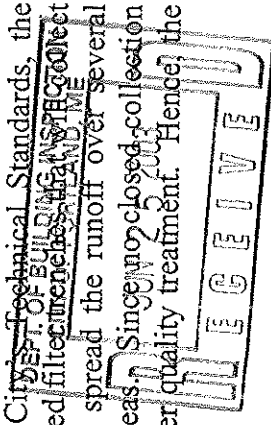 City's Technical Standards, the
ed filter trenches that will collect
spread the runoff over several
eas. Since no closed collection
er quality treatment. Hence, the
DEPT. OF BUILDING INSPECTION
PORTLAND, ME
JUN 25 2003
RECEIVED